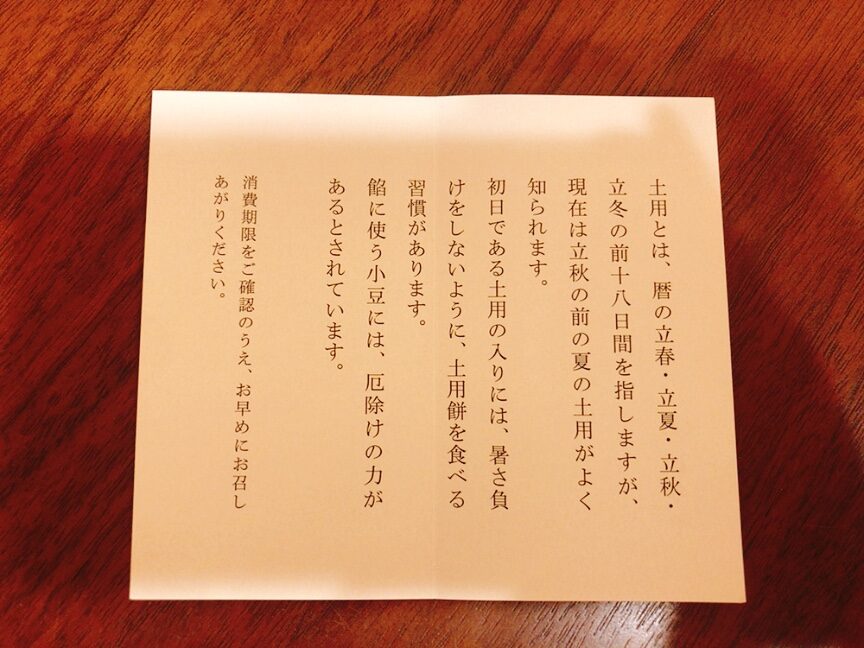 土用とは、暦の立春・立夏・立秋・
立冬の前十八日間を指しますが、
現在は立秋の前の夏の土用がよく
知られます。
初日である土用の入りには、暑さ負
けをしないように、土用餅を食べる
習慣があります。
餡に使う小豆には、厄除けの力が
あるとされています。
消費期限をご確認のうえ、お早めにお召し
あがりください。